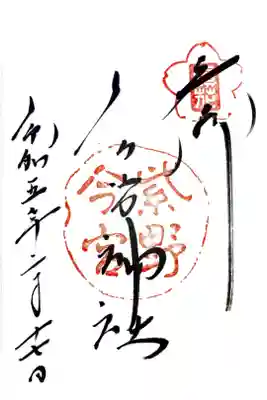 奉拝
今宮神社
紫野
今宮
令和五年二月十七日